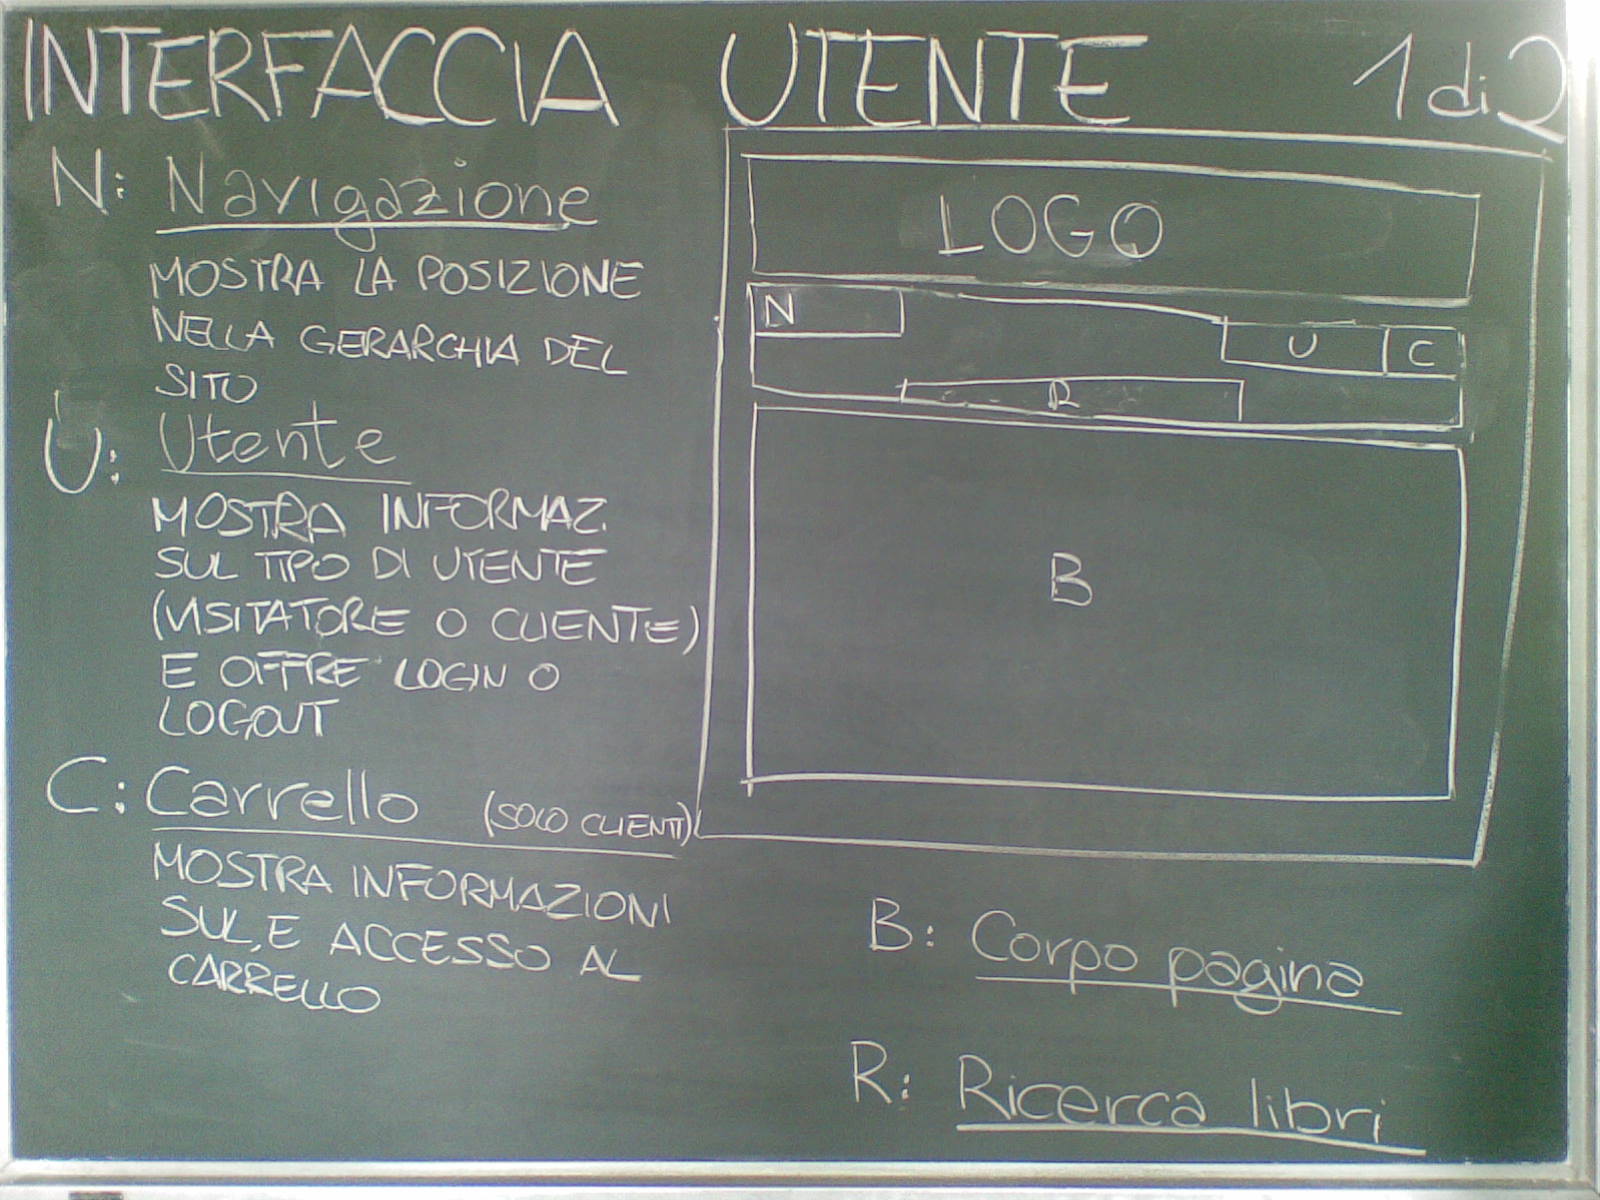 INTERFACCIA UTENTE 1 di 2
N: Navigazione
MOSTRA LA POSIZIONE
NELLA GERARCHIA DEL
SITO
U: Utente
MOSTRA INFORMAZ.
SUL TIPO DI UTENTE
(VISITATORE O CLIENTE)
E OFFRE LOGIN O
LOGOUT
C: Carrello (SOLO CLIENTI)
MOSTRA INFORMAZIONI
SUL, E ACCESSO AL
CARRELLO
LOGO
N
U C
R
B
B: Corpo pagina
R: Ricerca libri